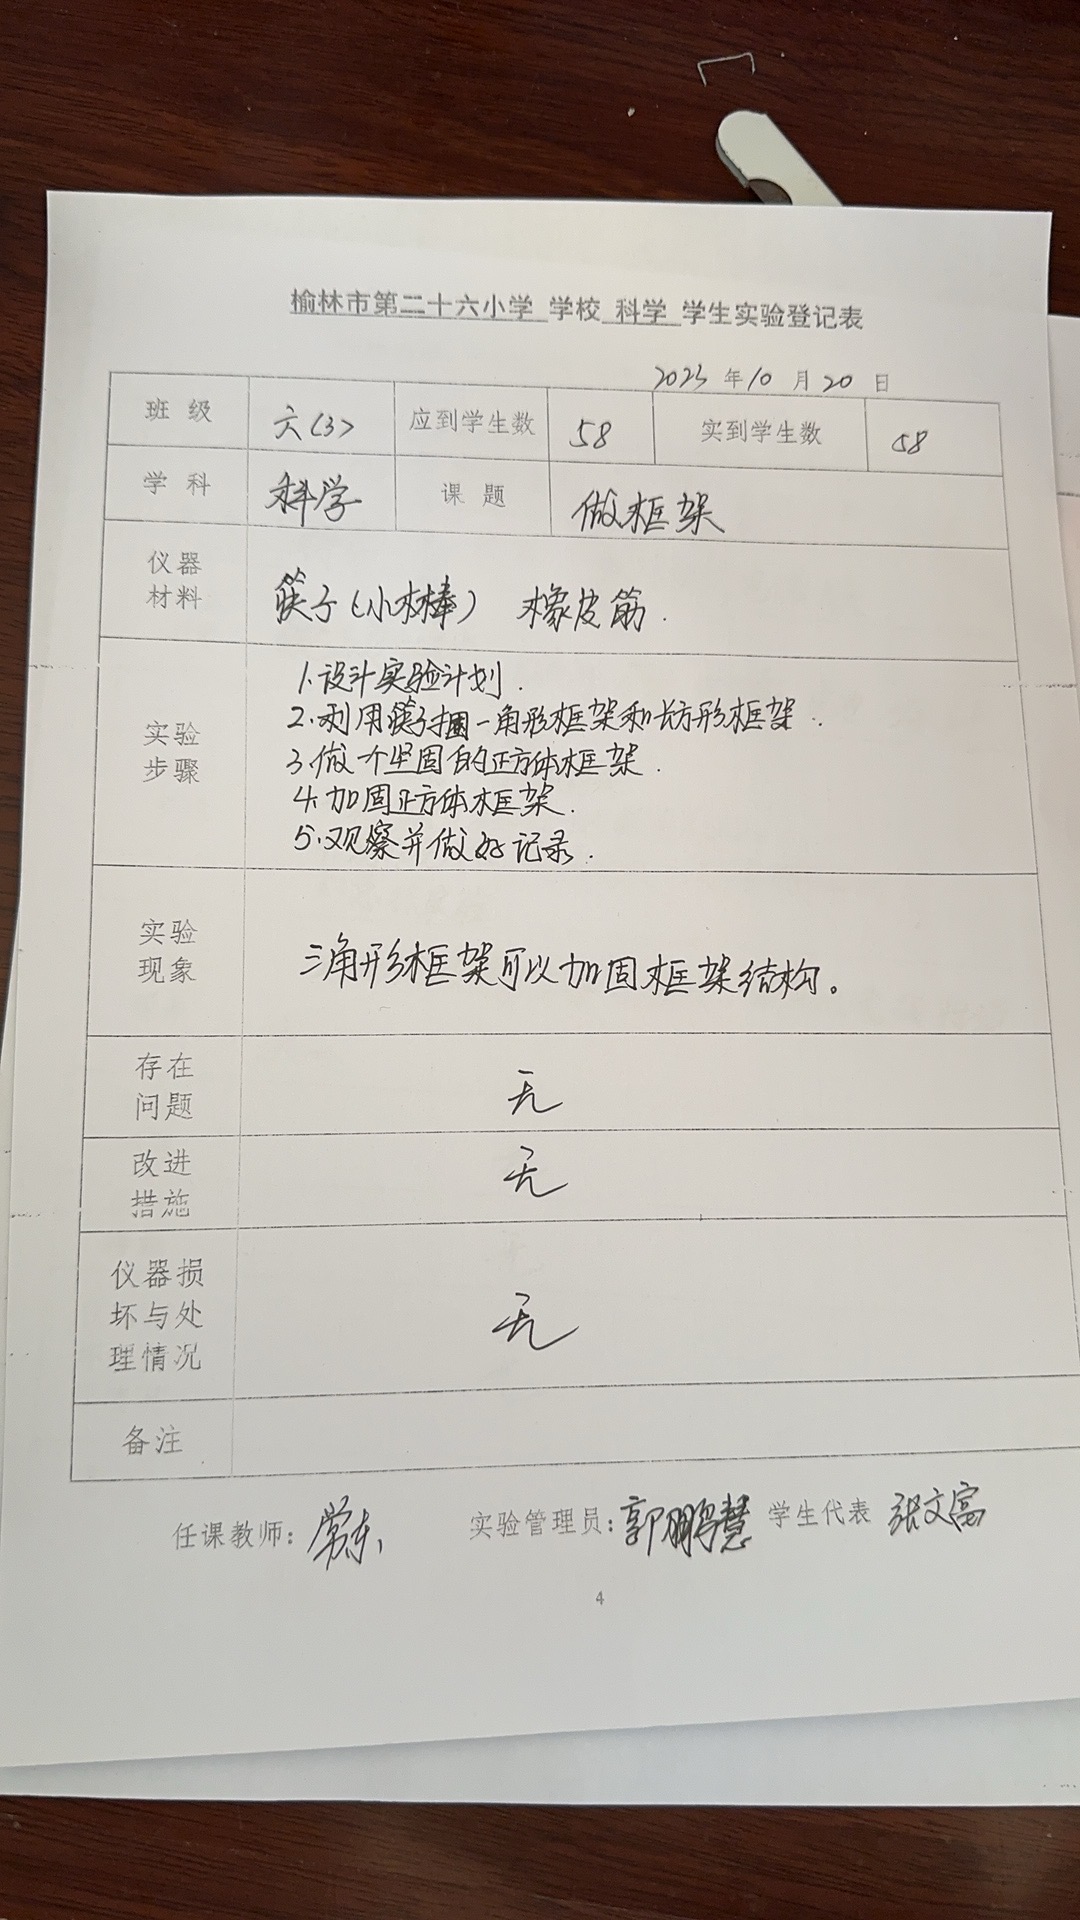 榆林市第二十六小学 学校 科学 学生实验登记表
2023 年 10 月 20 日
班级 六(3) 应到学生数 58 实到学生数 58
学科 科学 课题 做框架
仪器材料 筷子(小木棒) 橡皮筋.
实验步骤
1.设计实验计划.
2.利用筷子捆一角形框架和长方形框架.
3.做个坚固的正方体框架.
4.加固正方体框架.
5.观察并做好记录.
实验现象 三角形框架可以加固框架结构。
存在问题 无
改进措施 无
仪器损坏与处理情况 无
备注
任课教师: 常东 实验管理员: 郭鹏慧 学生代表 张文富
4